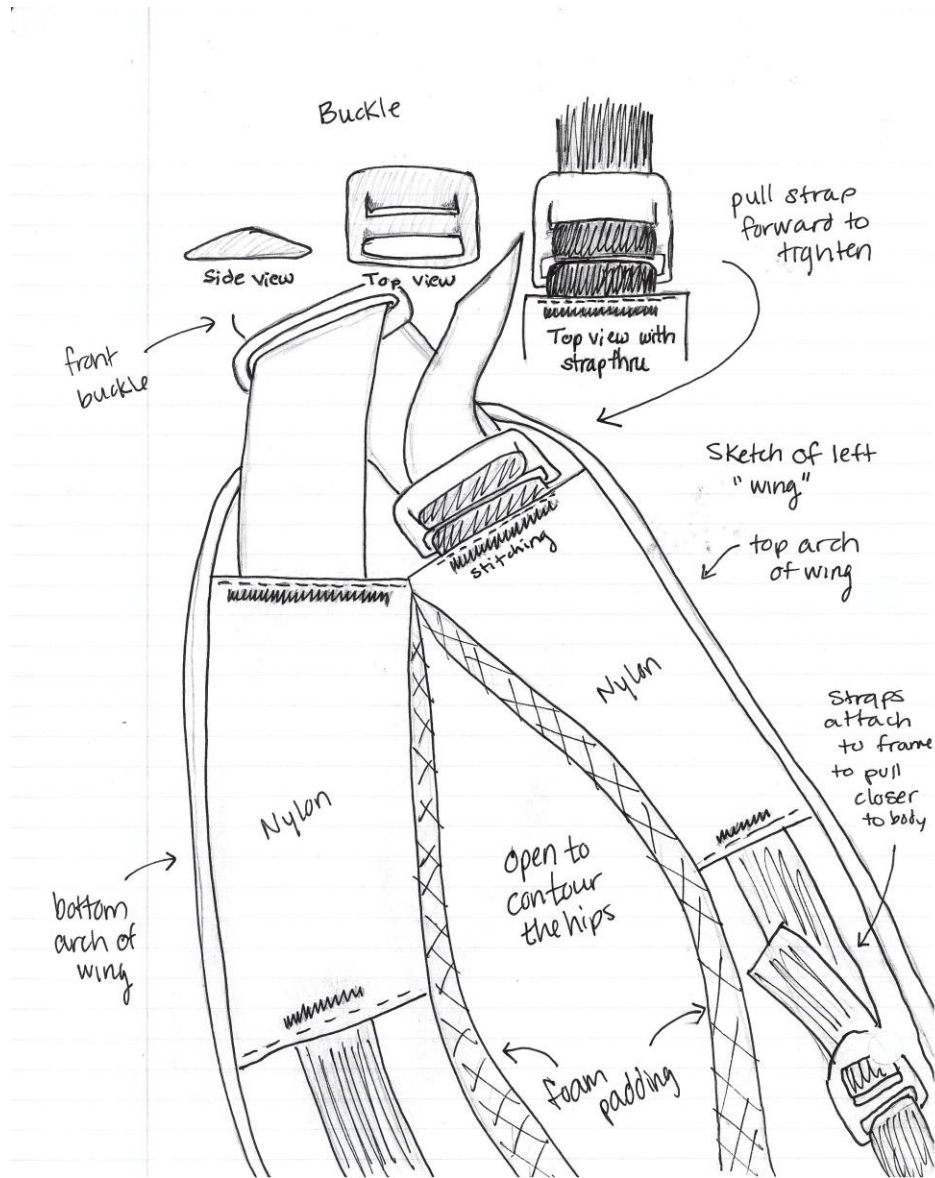 Buckle
Side view
Top view
Top view with
strap thru
pull strap
forward to
tighten
front
buckle
Sketch of left
"wing"
top arch
of wing
stitching
Nylon
Straps
attach
to frame
to pull
closer
to body
Nylon
Open to
contour
the hips
bottom
arch of
wing
foam
padding